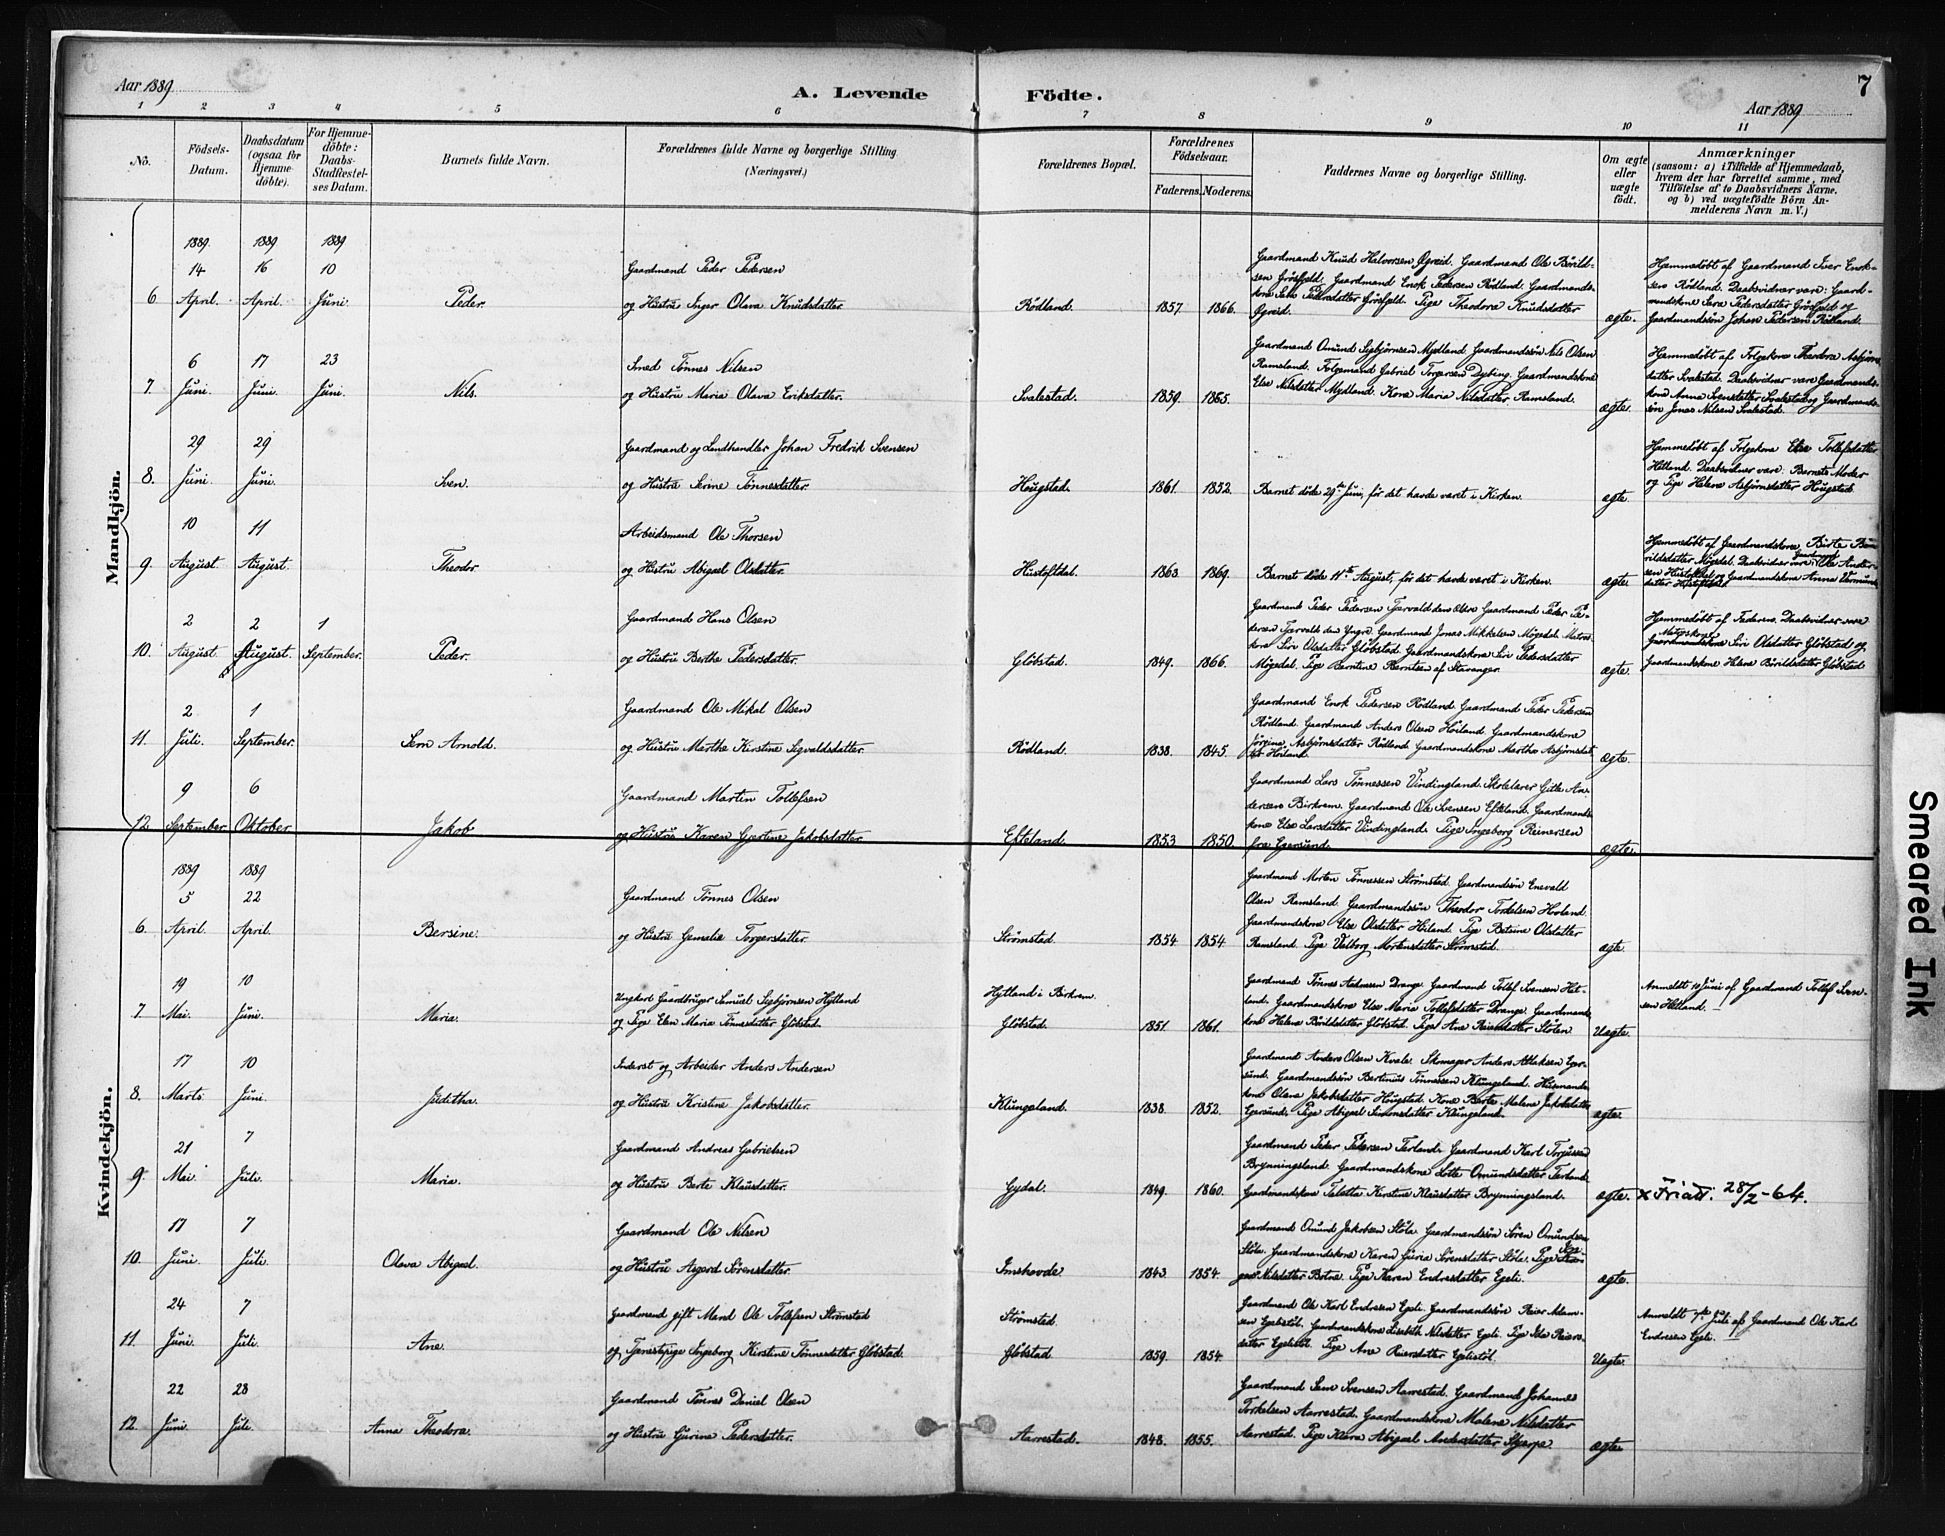 Aar 1889
A. Levende Födte.
7
Aar 1889
1 2 3 4 5 6 7 8 9 10 11
No.
Födsels-
Datum.
Daabsdatum
(ogsaa for
Hjemme-
döbte).
For Hjemme-
döbte:
Daabs-
Stadfæstel-
ses Datum.
Barnets fulde Navn.
Forældrenes fulde Navne og borgerlige Stilling
(Næringsvei.)
Forældrenes Bopæl.
Forældrenes
Födselsaar.
Faderens. Moderens.
Faddernes Navne og borgerlige Stilling.
Om ægte
eller
uægte
födt.
Anmærkninger
(saasom: a) i Tilfælde af Hjemmedaab,
hvem der har forrettet samme, med
Tilföielse af to Daabsvidners Navne.
og b) ved uægtefödte Börn An-
melderens Navn m. V.)
Mandkjön.
1889 1889 1889
6 14 April. 16 April. 10 Juni. Peder.
Gaardmand Peder Pedersen
og Hustru Inger Olava Knudsdatter.
Rödland. 1857. 1866.
Gaardmand Knud Halvorsen Øgreid. Gaardmand Ole Bövild-
sen Grösfjeld. Gaardmand Enok Pedersen Rödland. Gaardmands-
kone Pedersdatter Grösfjeld. Pige Theodora Knudsdatter
Øgreid.
ægte.
Hjemmedöbt af Gaardmand Iver Enok-
sen Rödland. Daabsvidner vare: Gaard-
mandskone Sara Pedersdatter Grösfjeld og
Gaardmandssön Johan Pedersen Rödland.
7 6 Juni. 17 Juni. 23 Juni. Nils.
Smed Tönnes Nilsen
og Hustru Maria Olava Eriksdatter.
Svalestad. 1859. 1865.
Gaardmand Omund Sigbjörnsen Mydland. Gaardmandssön Nils Olsen
Ramsland. Folgemand Gabriel Torgersen Dybing. Gaardmandskone
Else Nilsdatter Mydland. Kone Maria Nilsdatter Ramsland.
ægte.
Hjemmedöbt af Folgekone Theodora Asbjörns-
datter Svalestad. Daabsvidner vare Gaardmands-
kone Anna Svensdatter Svalestad og Gaardmands-
sön Jonas Nilsen Svalestad.
8. 29 Juni. 29 Juni. Sven.
Gaardmand og Landhandler Johan Fredrik Svensen
og Hustru Serine Tönnesdatter.
Hougstad. 1861. 1852.
Barnet döde 29de Juni, för det havde været i Kirken.
ægte.
Hjemmedöbt af Folgekone Else Tollefsdatter
Hetland. Daabsvidner vare: Barnets Moder
og Pige Helene Asbjörnsdatter Hougstad.
9. 10 August. 11 August. Theodor
Arbeidsmand Ole Thorsen
og Hustru Abigael Olsdatter.
Hustoftdal. 1863 1869.
Barnet döde 11te August, för det havde været i Kirken.
ægte.
Hjemmedöbt af Gaardmandskone Birte Bö-
rildsdatter Mögedal. Daabsvidner vare: Gaardmand Ole Ander-
sen Hustoftdal og Gaardmandskone Anna
datter Hustoftdal.
10. 2 August. 2 August. 1 September. Peder.
Gaardmand Hans Olsen
og Hustru Berthe Pedersdatter.
Glöbstad. 1849. 1866.
Gaardmand Peder Pedersen Tjervald den ældre. Gaardmand Peder Pe-
dersen Tjervald den Yngre. Gaardmand Jonas Mikkelsen Mögedal. Matros-
kone Siri Olsdatter Glöbstad. Gaardmandskone Siri Pedersdatter
Mögedal. Pige Berntine Berntsen af Stavanger.
ægte.
Hjemmedöbt af Faderen. Daabsvidner vare
Matroskone Siri Olsdatter Glöbstad og
Gaardmandskone Helene Börildsdatter Glöbstad
11. 2 Juli. 1 September. Sern Arnold.
Gaardmand Ole Mikal Olsen
og Hustru Marthe Kirstine Sigvaldsdatter.
Rödland. 1838. 1845.
Gaardmand Enok Pedersen Rödland. Gaardmand Peder Pedersen
Rödland. Gaardmand Anders Olsen Höiland. Gaardmandskone
Jörgine Asbjörnsdatter Rödland. Gaardmandskone Marthe Asbjörnsdat-
ter Höiland.
ægte.
12 9 September 6 Oktober Jakob
Gaardmand Martin Tollefsen
og Hustru Karen Gjertine Jakobsdatter.
Efteland. 1853 1850.
Gaardmand Lars Tönnessen Vindingland. Skolelærer Gitle An-
dersen Birkrem. Gaardmand Ole Svensen Efteland. Gaardmands-
kone Else Larsdatter Vindingland. Pige Ingeborg Reinersen
fra Egersund.
ægte.
Kvindekjön.
1889 1889
6. 5 April. 22 April. Bersine.
Gaardmand Tönnes Olsen
og Hustru Gemalie Torgersdatter.
Strömstad. 1854 1854
Gaardmand Morten Tönnessen Strömstad. Gaardmandssön Enevald
Olsen Ramsland. Gaardmandssön Theodor Torkelsen Hovland.
Gaardmandskone Else Olsdatter Höiland. Pige Betsine Olsdatter
Ramsland. Pige Valborg Mortensdatter Strömstad.
ægte.
7 19 Mai. 10 Juni. Maria.
Ungkarl Gaardbruger Samuel Sigbjörnsen Hytland
og Pige Elen Maria Tönnesdatter Glöbstad.
Hytland i Birkrem.
Glöbstad. 1851. 1861.
Gaardmand Tönnes Aadnesen Drange. Gaardmand Tollef Svensen Het-
land. Gaardmandskone Else Marie Tollefsdatter Drange. Gaardmands-
kone Helene Börildsdatter Glöbstad. Pige Ane Reiersdatter Stölen.
Uægte.
Anmeldt 10 Juni af Gaardmand Tollef Sven-
sen Hetland.
8. 17 Marts 10 Juni. Juditha.
Inderst og Arbeider Anders Andersen
og Hustru Kristine Jakobsdatter.
Klungeland. 1838. 1852.
Gaardmand Anders Olsen Kvale. Skomager Anders Attaksen Eger-
sund. Gaardmandssön Bertinius Tönnessen Klungeland. Husmands-
kone Olava Jakobsdatter Hougstad. Kone Berte Malene Jakobsdatter
Egersund. Pige Abigael Simonsdatter Klungeland.
ægte.
9. 21 Mai. 7 Juli. Maria.
Gaardmand Andreas Gabrielsen
og Hustru Berte Klausdatter.
Gydal. 1849. 1860.
Gaardmand Peder Pedersen Terland. Gaardmand Karl Torgersen
Brynningsland. Gaardmandskone Lotte Omundsdatter Terland.
Gaardmandskone Taletta Kirstine Klausdatter Brynningsland.
ægte. x Friatt. 28/2-64.
10. 17 Juni. 7 Juli. Olava Abigael.
Gaardmand Ole Nilsen
og Hustru Asgerd Sörensdatter.
Imshovde. 1843. 1854.
Gaardmand Omund Jakobsen Stöle. Gaardmandssön Sören Omundsen
Stöle. Gaardmandskone Karen Guria Sörensdatter Stöle. Pige
Nilsdatter Botne. Pige Karen Endresdatter Egeli.
ægte.
11. 24 Juni. 7 Juli. Ane.
Gaardmand gift Mand Ole Tollefsen Strömstad
og Tjenestepige Ingeborg Kirstine Tönnesdatter Glöbstad.
Strömstad
Glöbstad. 1859. 1854.
Gaardmand Ole Karl Endresen Egeli. Gaardmandssön Reier Adam-
sen Egelistöl. Gaardmandskone Lisebeth Nilsdatter Egeli. Pige Ida Reiers-
datter Egelistöl. Pige Ane Reiersdatter Egelistöl.
Uægte.
Anmeldt 7de Juli af Gaardmand Ole Karl
Endresen Egeli.
12. 22 Juni. 28 Juli. Anna Theodora.
Gaardmand Tönnes Daniel Olsen
og Hustru Gurine Pedersdatter.
Aarrestad. 1848. 1855.
Gaardmand Sem Svensen Aarrestad. Gaardmand Johannes
Torkelsen Aarrestad. Gaardmandskone Malene Nilsdatter
Aarrestad. Pige Klara Abigael Andersdatter Skjerpe
ægte.
Smeared Ink